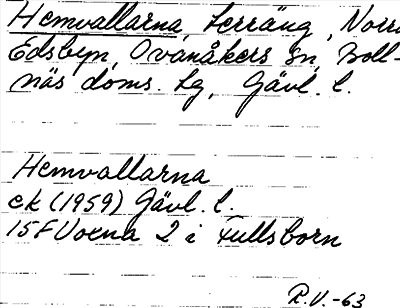 Hemvallarna, terräng, Norra
Edsbyn, Ovanåkers sn, Boll-
näs doms. tg, Gävl. l.
Hemvallarna
ek (1959) Gävl. l.
15F Voxna 2 i Fullsborn
R.V.-63